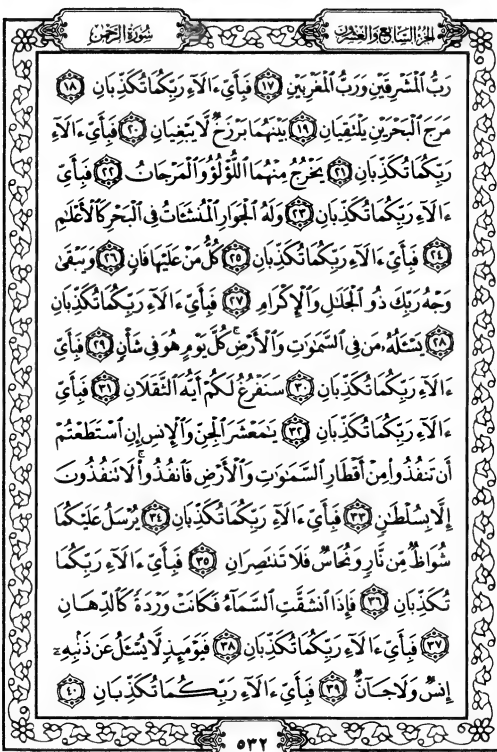 سُورَةُ الرَّحْمَٰن
الجُزْءُ السَّابِعُ وَالعِشْرُون
رَبُّ ٱلْمَشْرِقَيْنِ وَرَبُّ ٱلْمَغْرِبَيْنِ ١٧ فَبِأَيِّ ءَالَآءِ رَبِّكُمَا تُكَذِّبَانِ ١٨
مَرَجَ ٱلْبَحْرَيْنِ يَلْتَقِيَانِ ١٩ بَيْنَهُمَا بَرْزَخٌ لَّا يَبْغِيَانِ ٢٠ فَبِأَيِّ ءَالَآءِ
رَبِّكُمَا تُكَذِّبَانِ ٢١ يَخْرُجُ مِنْهُمَا ٱللُّؤْلُؤُ وَٱلْمَرْجَانُ ٢٢ فَبِأَيِّ
ءَالَآءِ رَبِّكُمَا تُكَذِّبَانِ ٢٣ وَلَهُ ٱلْجَوَارِ ٱلْمُنشَـَٔاتُ فِي ٱلْبَحْرِ كَٱلْأَعْلَٰمِ
٢٤ فَبِأَيِّ ءَالَآءِ رَبِّكُمَا تُكَذِّبَانِ ٢٥ كُلُّ مَنْ عَلَيْهَا فَانٍ ٢٦ وَيَبْقَىٰ
وَجْهُ رَبِّكَ ذُو ٱلْجَلَٰلِ وَٱلْإِكْرَامِ ٢٧ فَبِأَيِّ ءَالَآءِ رَبِّكُمَا تُكَذِّبَانِ
٢٨ يَسْـَٔلُهُۥ مَن فِي ٱلسَّمَٰوَٰتِ وَٱلْأَرْضِ ۚ كُلَّ يَوْمٍ هُوَ فِي شَأْنٍ ٢٩ فَبِأَيِّ
ءَالَآءِ رَبِّكُمَا تُكَذِّبَانِ ٣٠ سَنَفْرُغُ لَكُمْ أَيُّهَ ٱلثَّقَلَانِ ٣١ فَبِأَيِّ
ءَالَآءِ رَبِّكُمَا تُكَذِّبَانِ ٣٢ يَٰمَعْشَرَ ٱلْجِنِّ وَٱلْإِنسِ إِنِ ٱسْتَطَعْتُمْ
أَن تَنفُذُوا۟ مِنْ أَقْطَارِ ٱلسَّمَٰوَٰتِ وَٱلْأَرْضِ فَٱنفُذُوا۟ ۚ لَا تَنفُذُونَ
إِلَّا بِسُلْطَٰنٍ ٣٣ فَبِأَيِّ ءَالَآءِ رَبِّكُمَا تُكَذِّبَانِ ٣٤ يُرْسَلُ عَلَيْكُمَا
شُوَاظٌ مِّن نَّارٍ وَنُحَاسٌ فَلَا تَنتَصِرَانِ ٣٥ فَبِأَيِّ ءَالَآءِ رَبِّكُمَا
تُكَذِّبَانِ ٣٦ فَإِذَا ٱنشَقَّتِ ٱلسَّمَآءُ فَكَانَتْ وَرْدَةً كَٱلدِّهَانِ
٣٧ فَبِأَيِّ ءَالَآءِ رَبِّكُمَا تُكَذِّبَانِ ٣٨ فَيَوْمَئِذٍ لَّا يُسْـَٔلُ عَن ذَنۢبِهِۦٓ
إِنسٌ وَلَا جَآنٌّ ٣٩ فَبِأَيِّ ءَالَآءِ رَبِّكُمَا تُكَذِّبَانِ ٤٠
٥٣٢